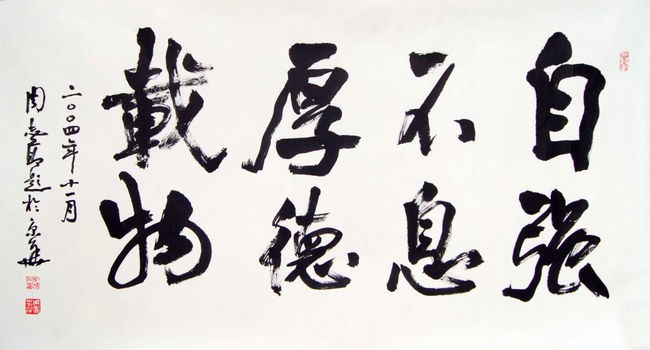 自强
不息
厚德
載物
二〇〇四年十一月
周志題於京華